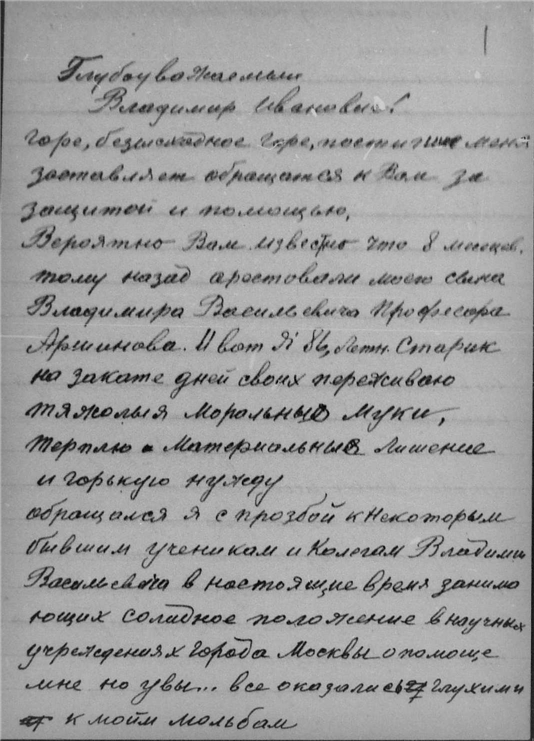 1
Глубоуважаемыи
Владимир Иванович!
Горе, безисходное горе, постигшие меня
заставляет обращатся к Вам за
защитой и помощью,
Вероятно Вам известно что 8 месецов.
тому назад арестовали моего сына
Владимира Васильевича Професора
Аршинова. И вот Я 86, летн. Старик
на закате дней своих переживаю
тяжолыя Моральные Муки,
терплю Материальные Лишение
и горькую нужду
обращался я с прозбой к Некоторым
бывшим ученикам и Колегам Владими
Васильевича в настоящие время занима
ющих солидное положение в научных
учреждениях города Москвы о помоще
мне но увы... все оказались глухими
к моим мольбам